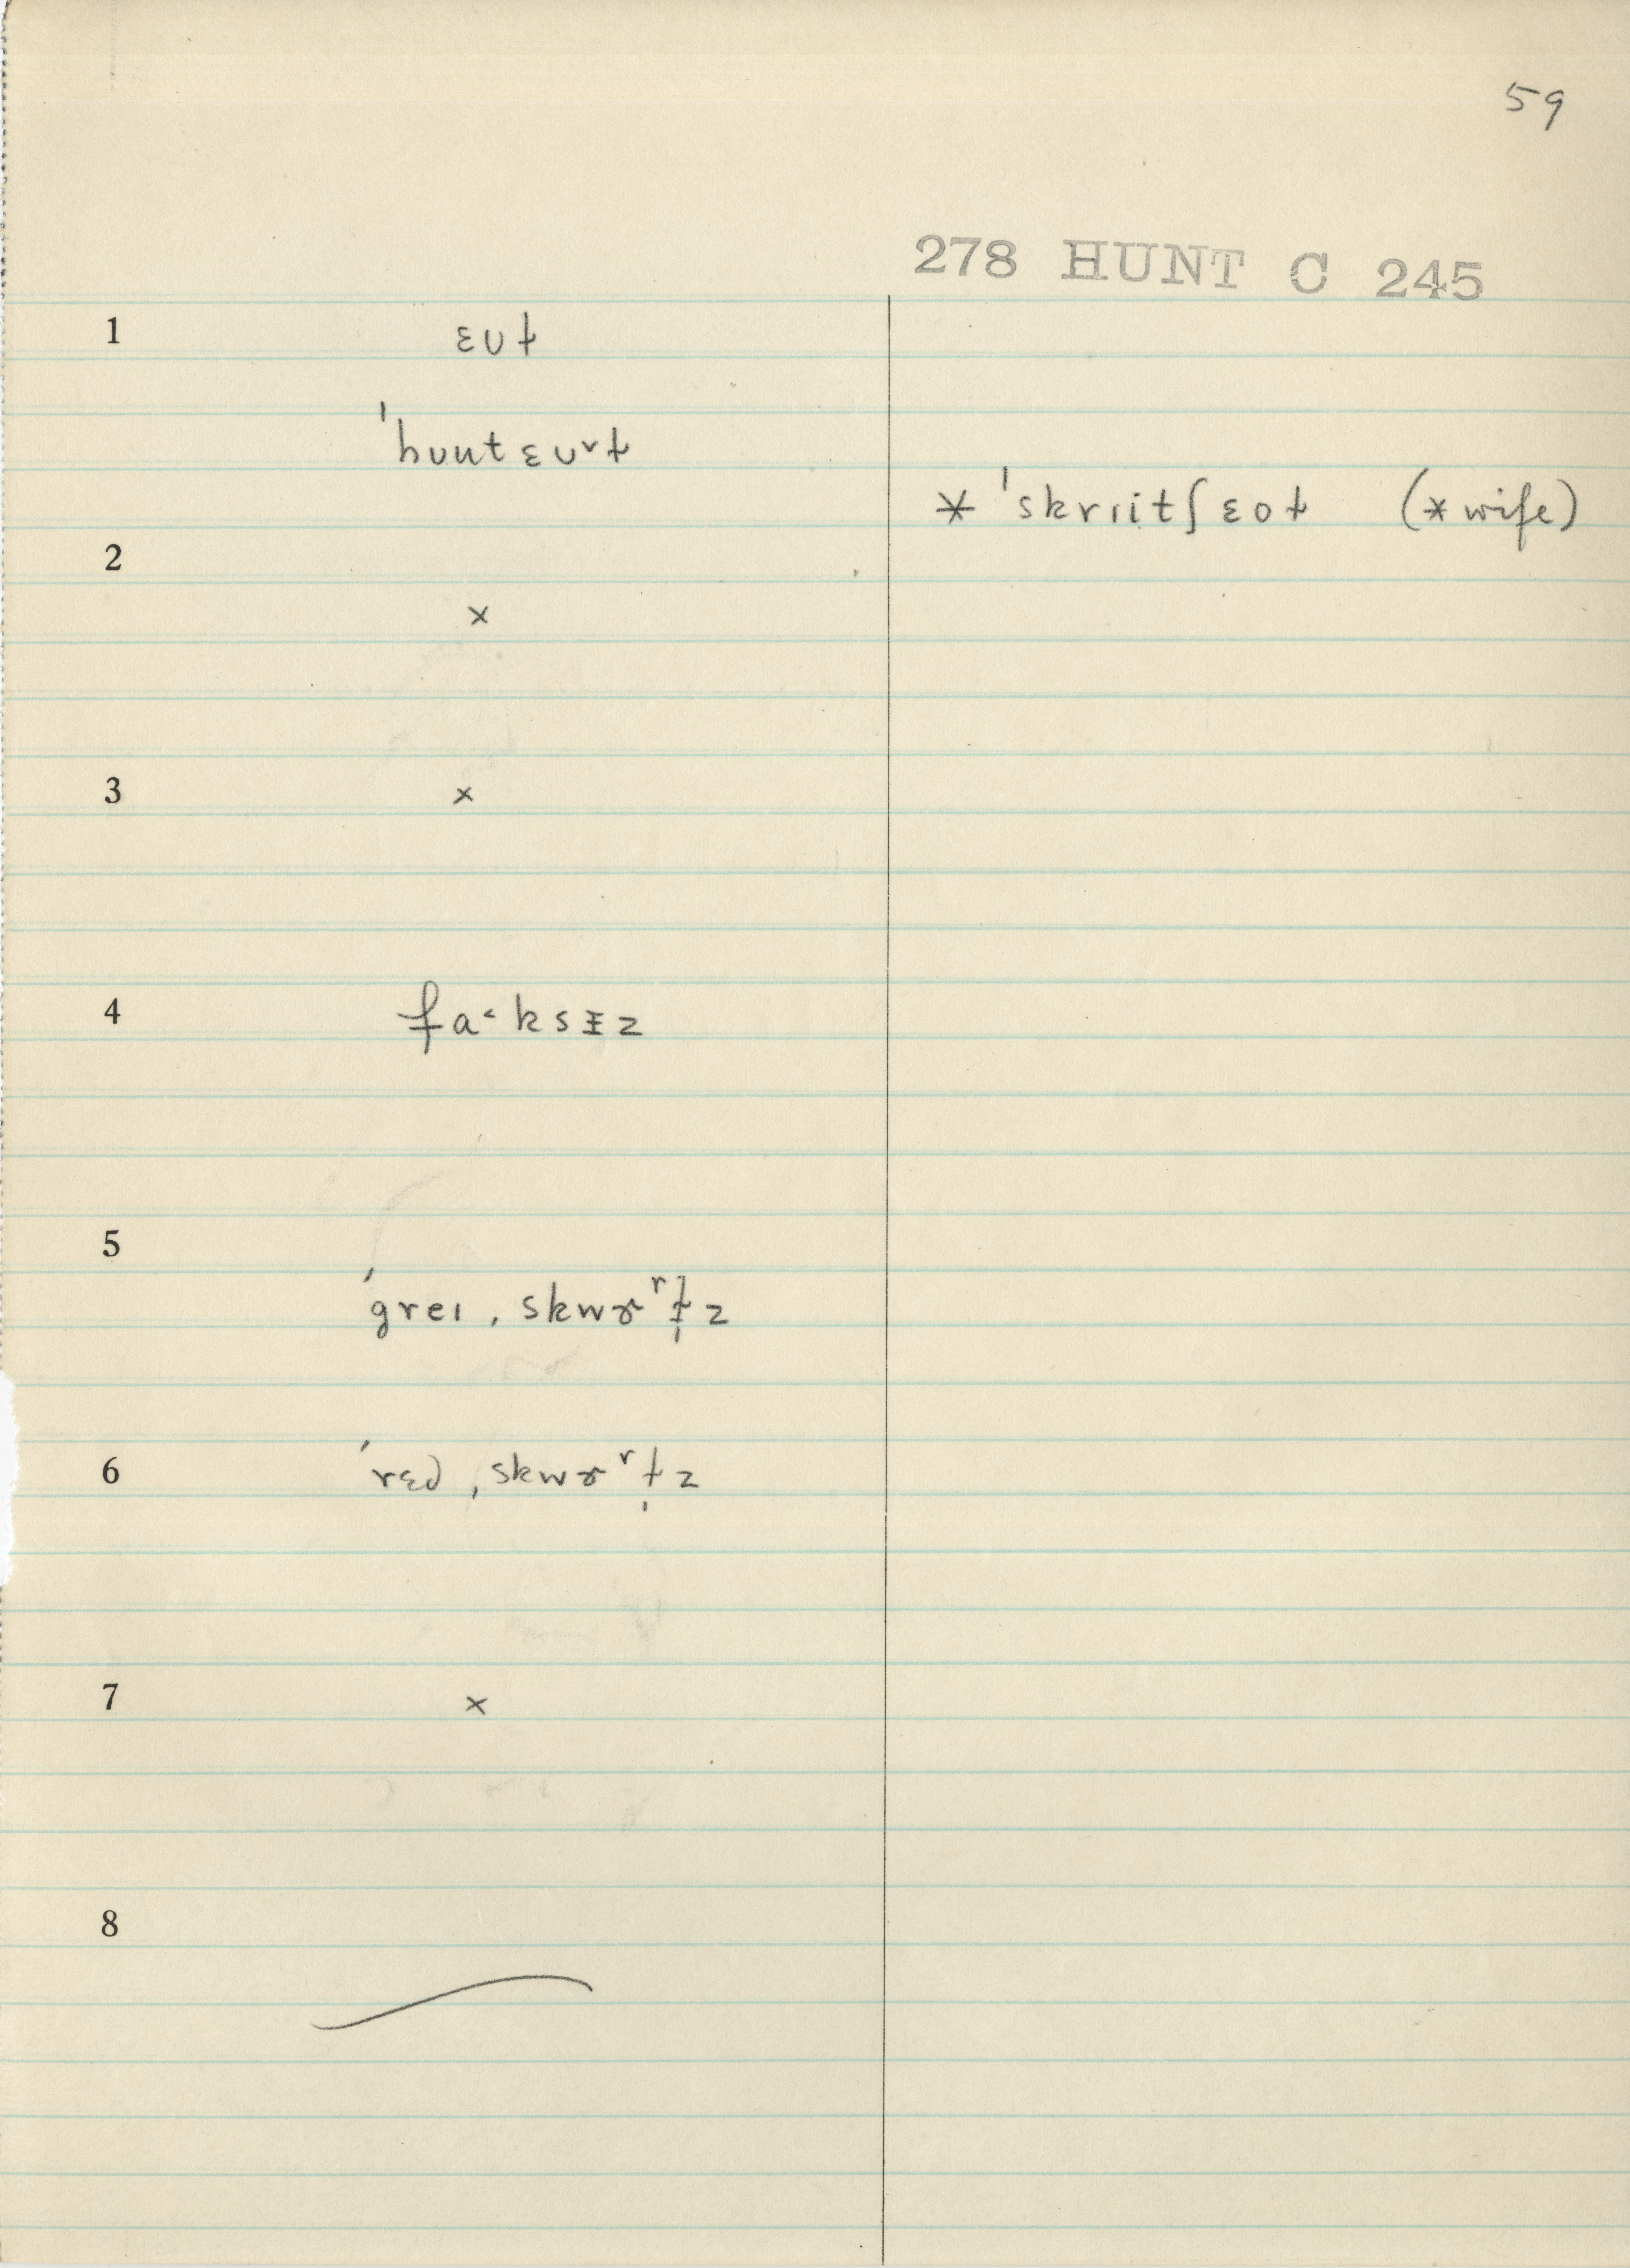 59
278 HUNT C 245
1 ɛʊɫ
ˈhuutɛuᵛɫ
* ˈskrɪitʃɛoɫ (*wife)
2
×
3 ×
4 fa˂ksɪ̵z
5
ˈgreɪ ˌskwɚʳɫ̩z
6 ˈrɛd ˌskwɚʳɫ̩z
7 ×
8